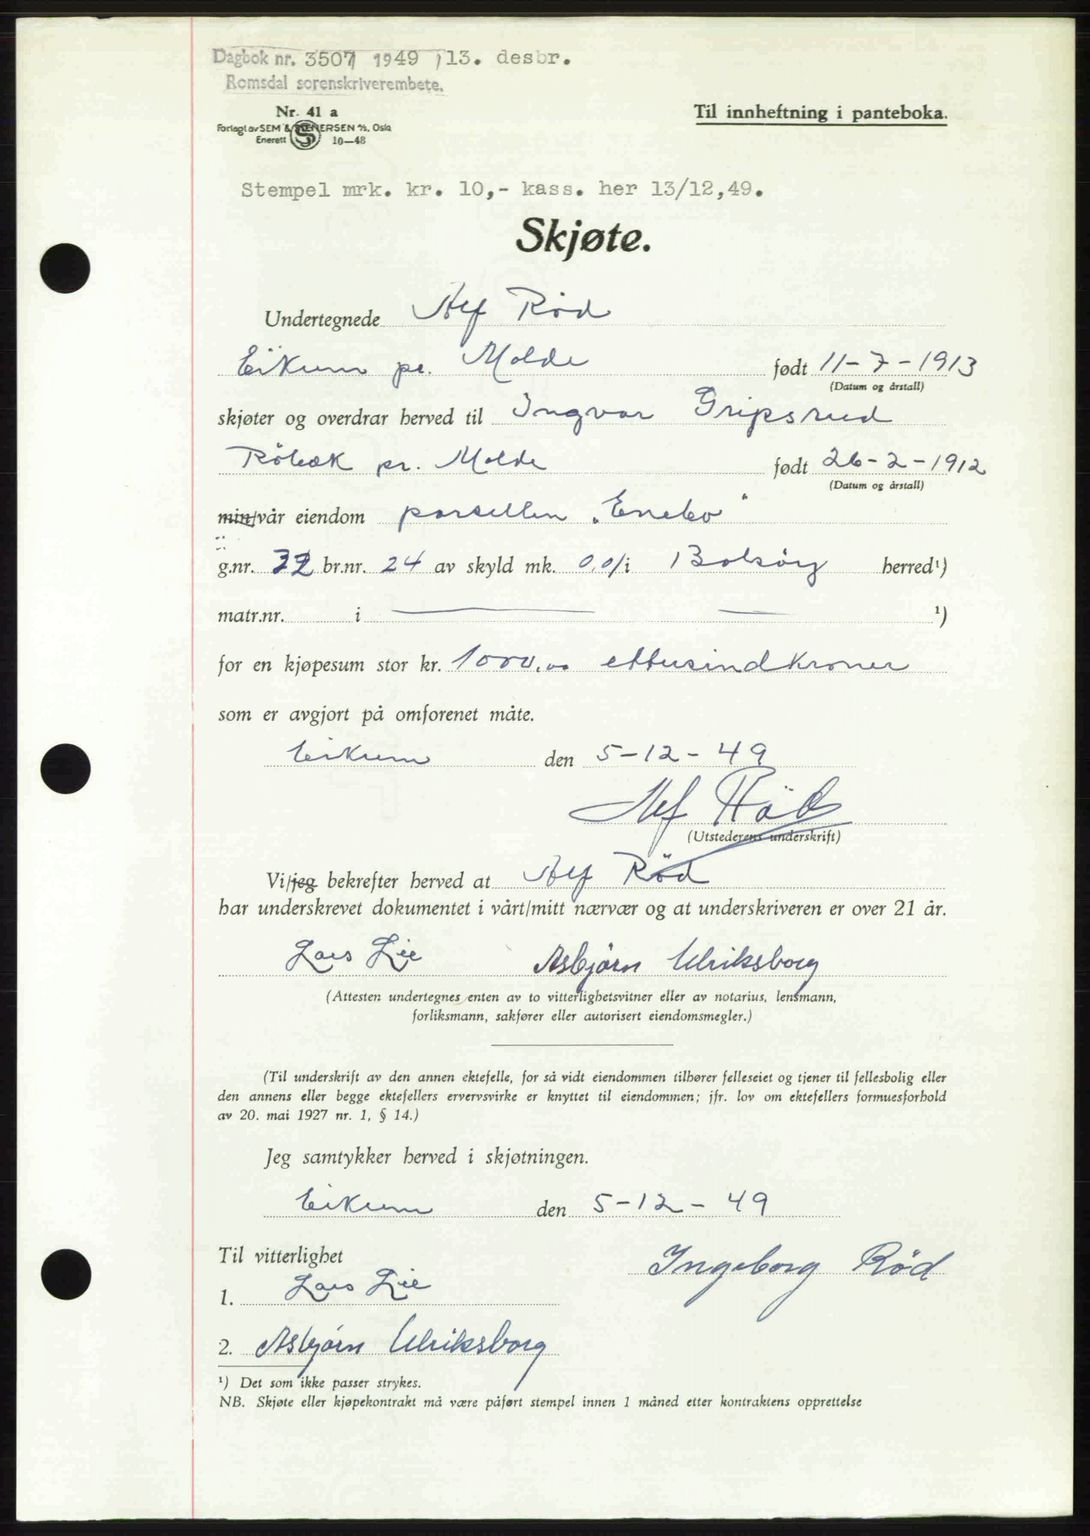 Dagbok nr. 3507 1949 / 13. desbr.
Romsdal sorenskriverembete.
Nr. 41 a
Til innheftning i panteboka.
Forlagt av SEM & STENERSEN A/S, Oslo
Enerett S 10—48
Stempel mrk. kr. 10,- kass. her 13/12,49.
Skjøte.
Undertegnede Alf Rød
Eikrem pr. Molde født 11-7-1913
(Datum og årstall)
skjøter og overdrar herved til Ingvar Gripsrud
Röbæk pr. Molde født 26-2-1912
(Datum og årstall)
min/vår eiendom parsellen „Enebo"
g.nr. 32 br.nr. 24 av skyld mk. 0,01 i Bolsöy herred¹)
matr.nr. i ¹)
for en kjøpesum stor kr. 1000,00 ettusindkroner
som er avgjort på omforenet måte.
Eikrem den 5-12-49
Alf Röd
(Utstederens underskrift)
Vi/jeg bekrefter herved at Alf Rød
har underskrevet dokumentet i vårt/mitt nærvær og at underskriveren er over 21 år.
Lars Lie Asbjørn Ulriksborg
(Attesten undertegnes enten av to vitterlighetsvitner eller av notarius, lensmann,
forliksmann, sakfører eller autorisert eiendomsmegler.)
(Til underskrift av den annen ektefelle, for så vidt eiendommen tilhører felleseiet og tjener til fellesbolig eller
den annens eller begge ektefellers ervervsvirke er knyttet til eiendommen; jfr. lov om ektefellers formuesforhold
av 20. mai 1927 nr. 1, § 14.)
Jeg samtykker herved i skjøtningen.
Eikrem den 5-12-49
Til vitterlighet
Ingeborg Rød
1. Lars Lie
2. Asbjørn Ulriksborg
¹) Det som ikke passer strykes.
NB. Skjøte eller kjøpekontrakt må være påført stempel innen 1 måned etter kontraktens opprettelse